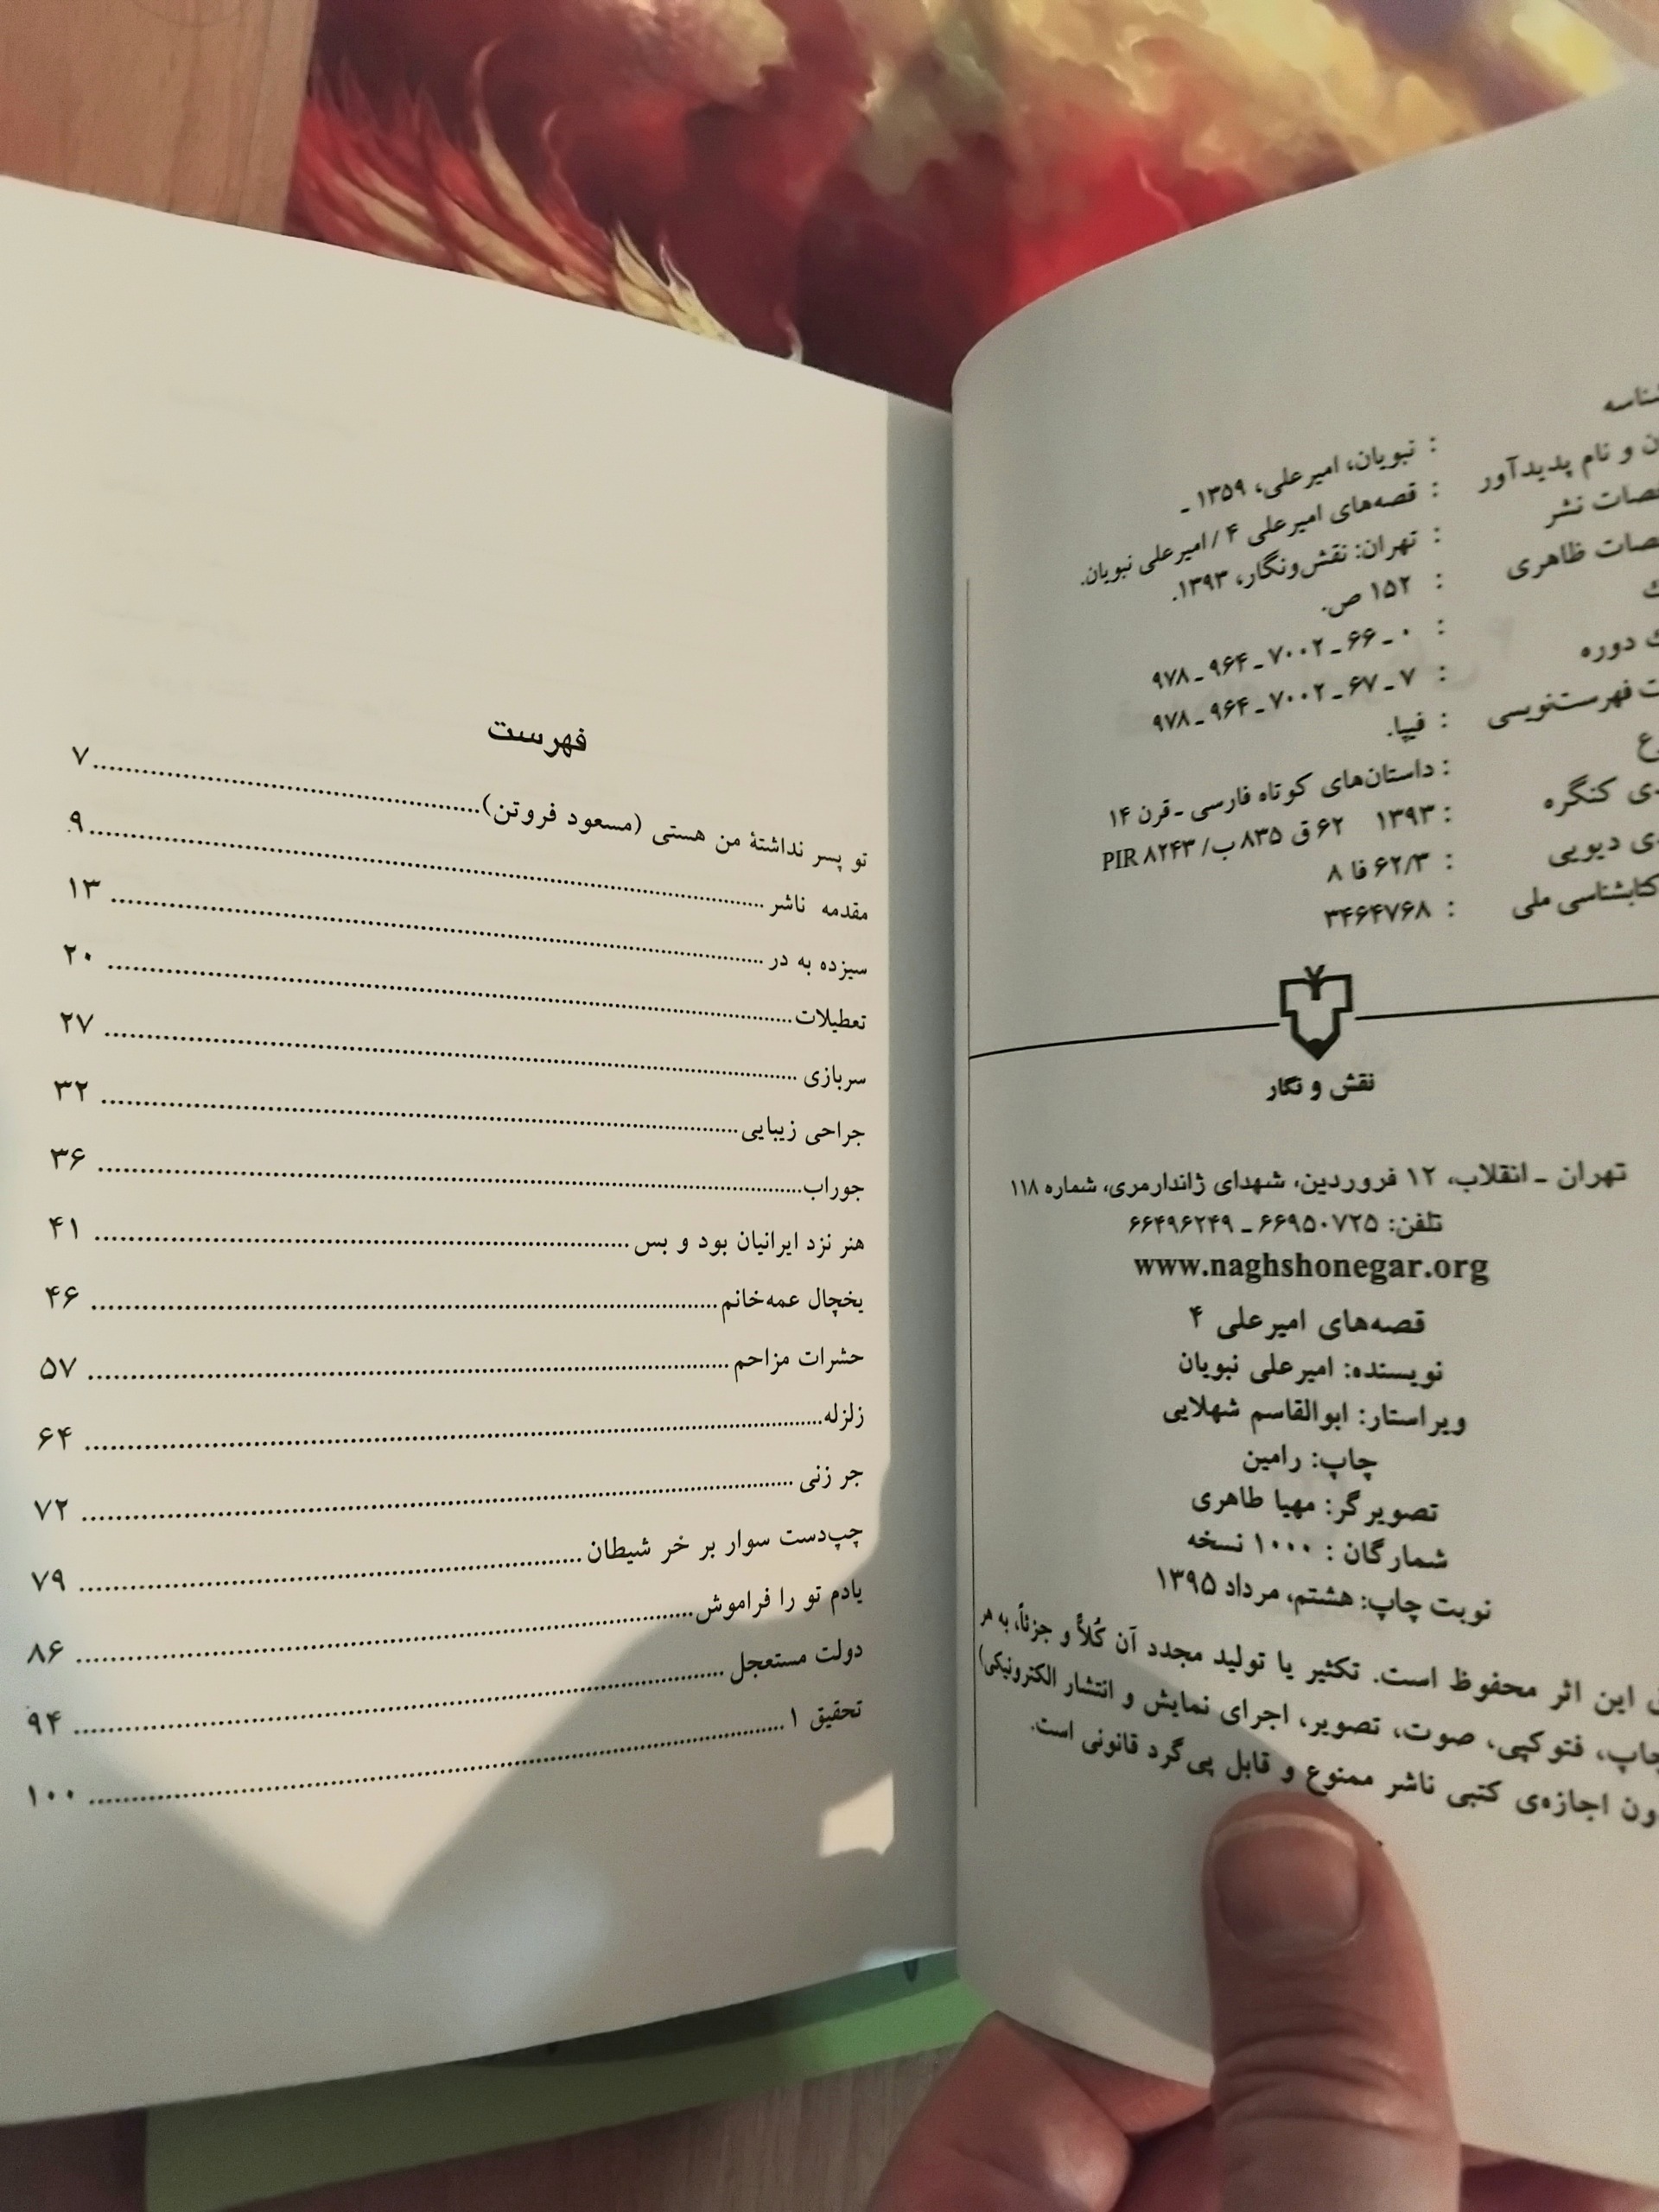 نبویان، امیرعلی، ۱۳۵۹ ـ
ن و نام پدیدآور : قصه‌های امیرعلی ۴ / امیرعلی نبویان.
صات نشر : تهران: نقش‌ونگار، ۱۳۹۳.
صات ظاهری : ۱۵۲ ص.
: ۹۷۸ ـ ۹۶۴ ـ ۷۰۰۲ ـ ۶۶ ـ ۰
دوره : ۹۷۸ ـ ۹۶۴ ـ ۷۰۰۲ ـ ۶۷ ـ ۷
ت فهرست‌نویسی : فیپا.
ع : داستان‌های کوتاه فارسی ـ قرن ۱۴
ی کنگره : ۱۳۹۳ ۶۲ ق ۸۳۵ ب/ PIR ۸۲۴۳
ی دیویی : ۶۲/۳ فا ۸
کتابشناسی ملی : ۳۴۶۴۷۶۸
نقش و نگار
تهران ـ انقلاب، ۱۲ فروردین، شهدای ژاندارمری، شماره ۱۱۸
تلفن: ۶۶۹۵۰۷۲۵ ـ ۶۶۴۹۶۲۴۹
www.naghshonegar.org
قصه‌های امیرعلی ۴
نویسنده: امیرعلی نبویان
ویراستار: ابوالقاسم شهلایی
چاپ: رامین
تصویرگر: مهیا طاهری
شمارگان : ۱۰۰۰ نسخه
نوبت چاپ: هشتم، مرداد ۱۳۹۵
این اثر محفوظ است. تکثیر یا تولید مجدد آن کُلاً و جزئاً، به هر
چاپ، فتوکپی، صوت، تصویر، اجرای نمایش و انتشار الکترونیکی)
ون اجازه‌ی کتبی ناشر ممنوع و قابل پی‌گرد قانونی است.
فهرست
تو پسر نداشتهٔ من هستی (مسعود فروتن)........ ۷
مقدمه ناشر........ ۹
سیزده به در........ ۱۳
تعطیلات........ ۲۰
سربازی........ ۲۷
جراحی زیبایی........ ۳۲
جوراب........ ۳۶
هنر نزد ایرانیان بود و بس........ ۴۱
یخچال عمه‌خانم........ ۴۶
حشرات مزاحم........ ۵۷
زلزله........ ۶۴
جر زنی........ ۷۲
چپ‌دست سوار بر خر شیطان........ ۷۹
یادم تو را فراموش........ ۸۶
دولت مستعجل........ ۹۴
تحقیق ۱........ ۱۰۰